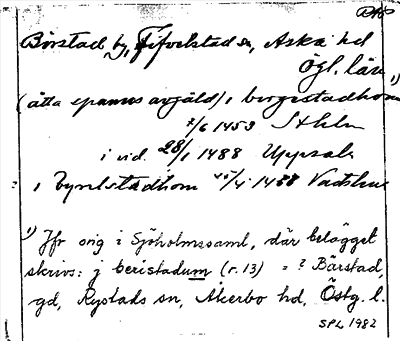 DAB
Börstad by, Fifvelstad sn, Aska hd
Ögl. län
(åtta spanns avgäld) i bergestadhom 1)
7/6 1459 Sthlm
i vid. 28/1 1488 Uppsala
i byrelstadhom /4 1488 Vadstena
1) Jfr orig i Sjöholmssaml, där belägget
skrivs: j beristadum (r. 13) = ? Bärstad,
gd, Rystads sn, Åkerbo hd, Östg. l.
SPL 1982